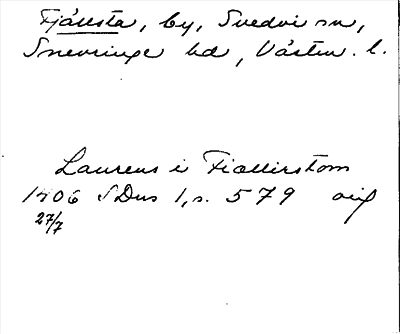 Fjällsta, by, Svedvi sn,
Snevringe hd, Västm. l.
Laurens i Fiællirstom
1406 SDns 1, s. 579 orig
27/7